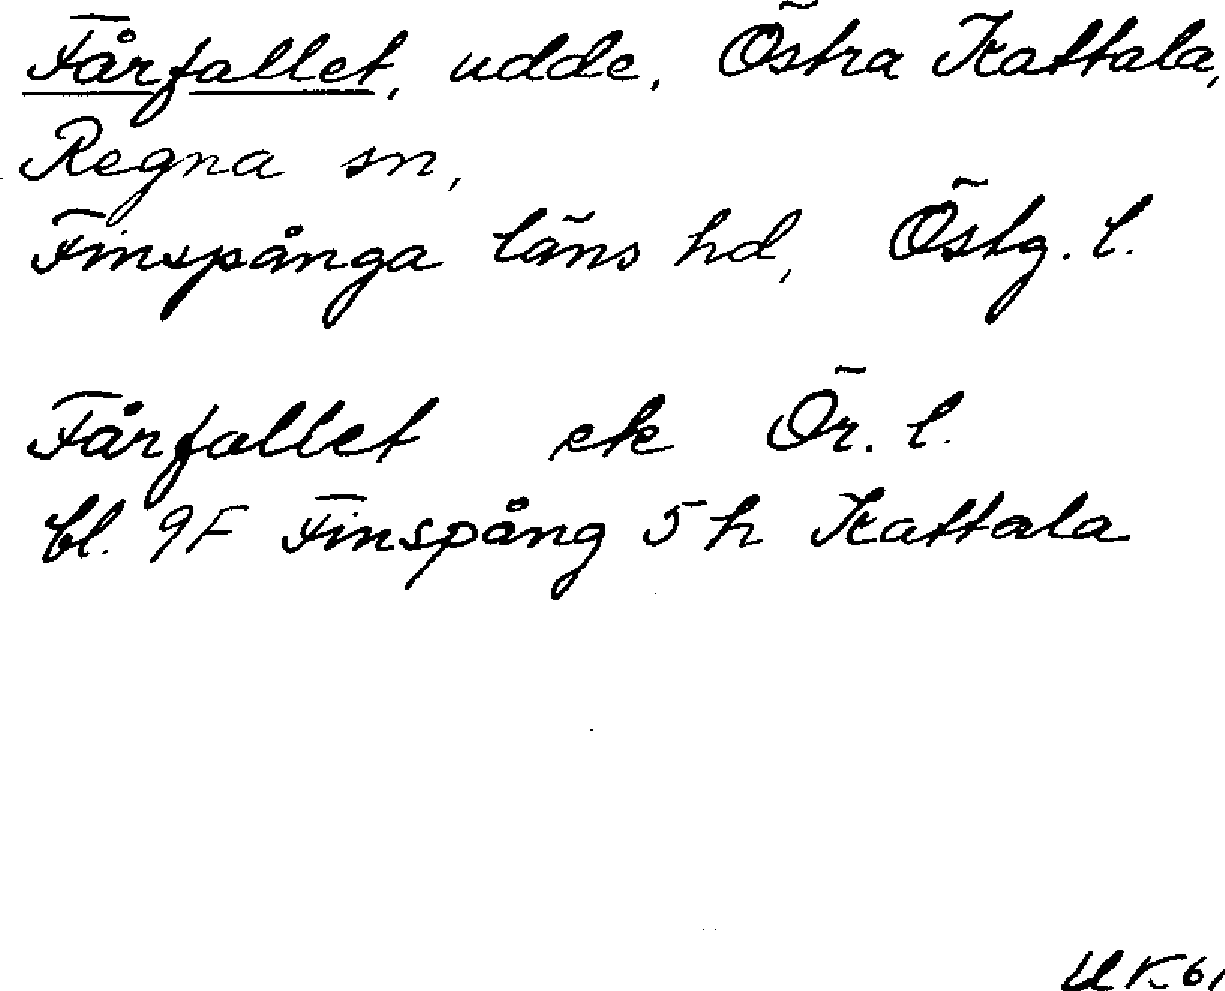 Fårfallet, udde, Östra Kattala,
Regna sn,
Finspånga läns hd, Östg. l.
Fårfallet ek Ör. l.
bl. 9F Finspång 5h Kattala